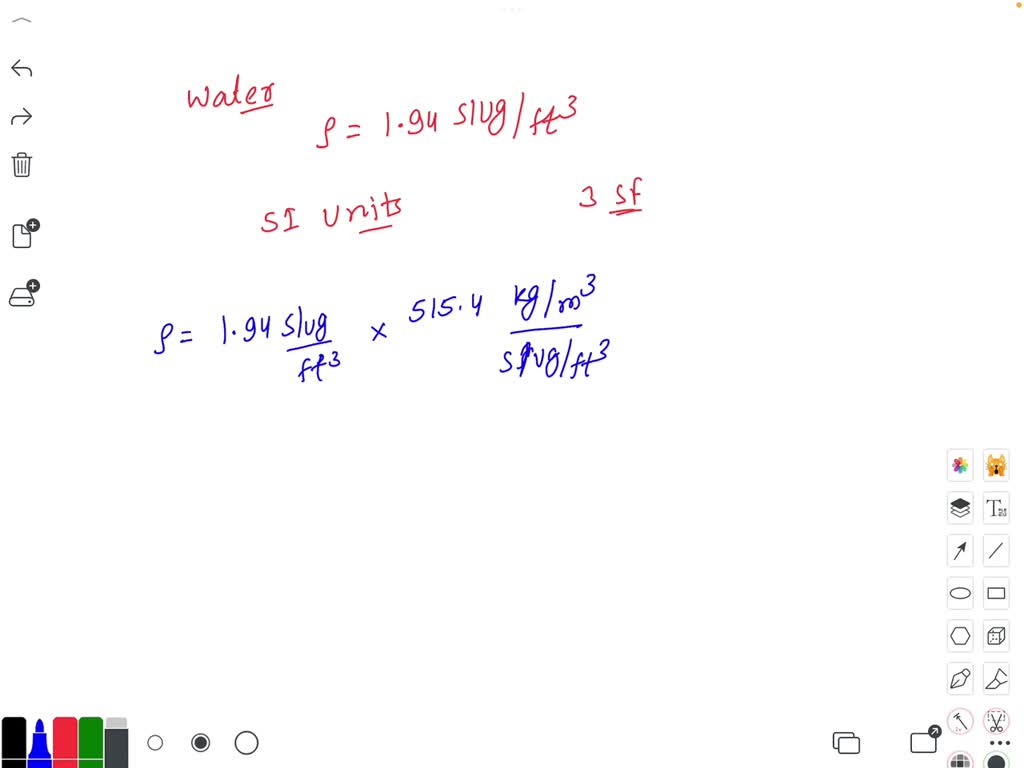 water
ρ = 1.94 slug/ft³
SI units
3 sf
ρ = 1.94 slug/ft³ × 515.4 kg/m³ / slug/ft³